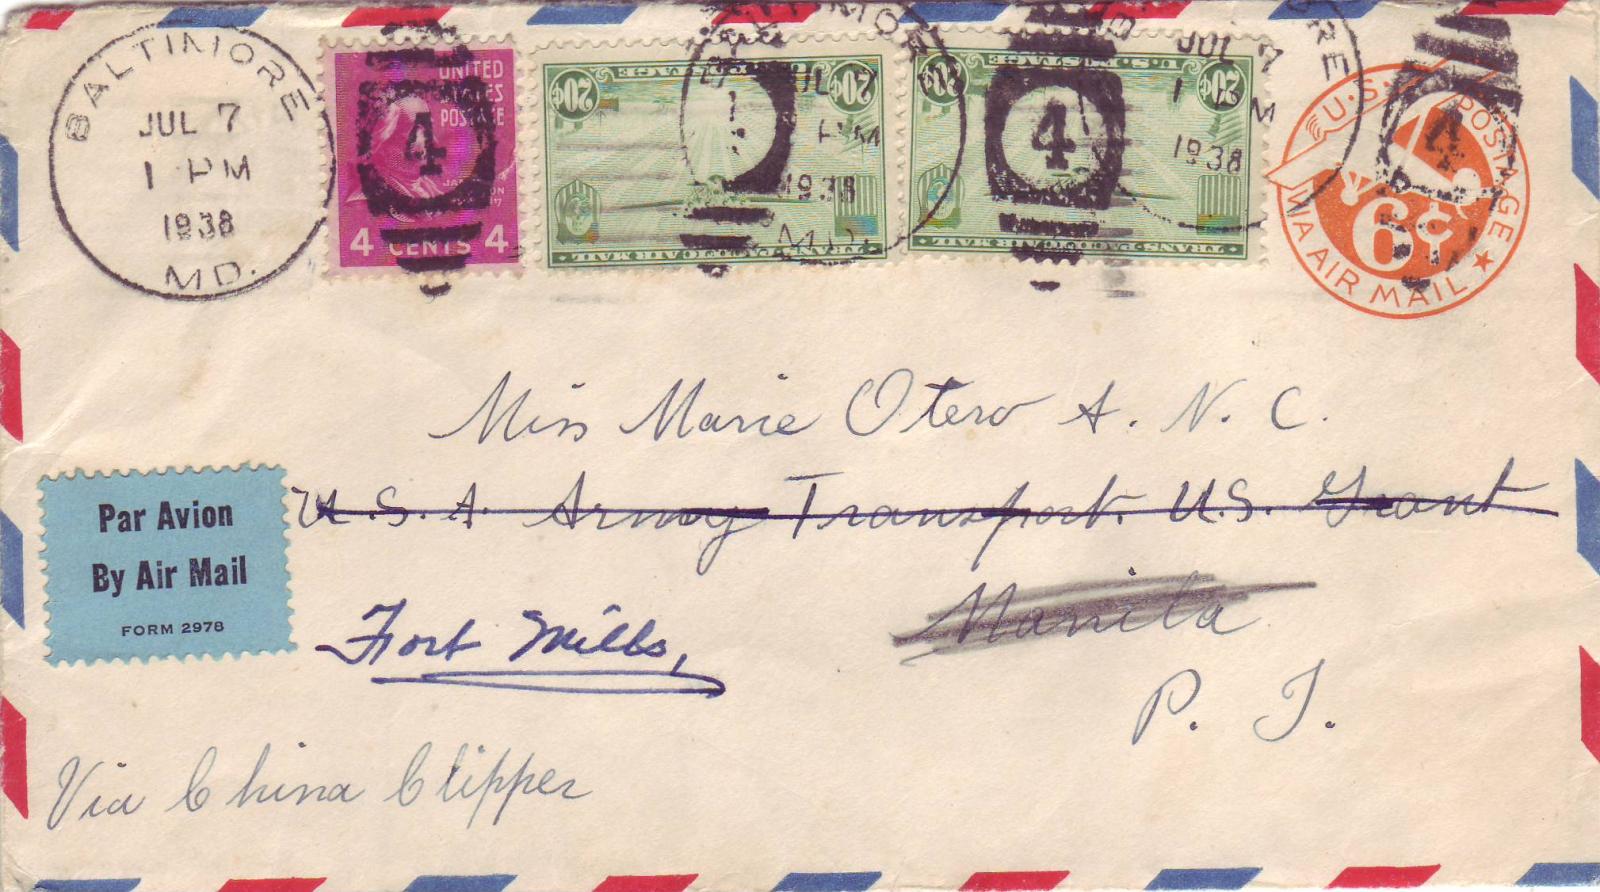 BALTIMORE
JUL 7
1 PM
1938
MD.
UNITED
STATES
POSTAGE
4
4 CENTS 4
20¢ U.S. POSTAGE 20¢
TRANS-PACIFIC AIR MAIL
JUL 7
1 PM
1938
MD.
20¢ U.S. POSTAGE 20¢
TRANS-PACIFIC AIR MAIL
4
JUL 7
1 PM
1938
U.S. POSTAGE
6¢
VIA AIR MAIL
4
Miss Marie Otero A. N. C.
U.S.A. Army Transport. U.S. Grant
Manila
Fort Mills,
P. I.
Par Avion
By Air Mail
FORM 2978
Via China Clipper